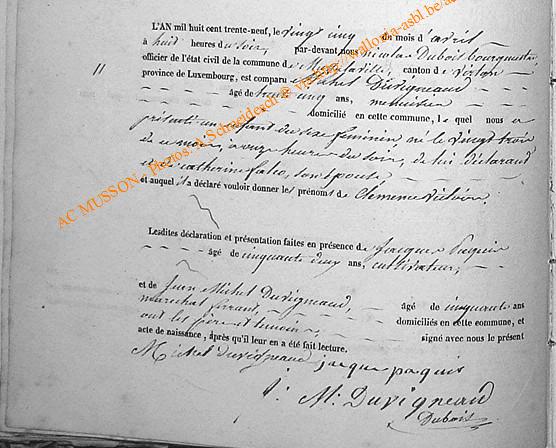 L'AN mil huit cent trente-neuf, le vingt cinq du mois d'avril
à huit heures du soir, par-devant nous Nicolas Dubois bourgmestre,
officier de l'état civil de la commune de canton de Virton
11
province de Luxembourg, est comparu Michel Duvigneaud
âgé de trente cinq ans, menuisier
domicilié en cette commune, lequel nous a
présenté un enfant du sexe féminin né le vingt trois
de ce mois, à onze heures du soir, de lui déclarant
et de catherine son épouse
et auquel il a déclaré vouloir donner les prénoms de Clémence
Lesdites déclaration et présentation faites en présence de Jacques Paquis
âgé de cinquante deux ans, cultivateur,
et de Jean Michel Duvigneaud, âgé de cinquante ans
maréchal ferrant, domiciliés en cette commune, et
ont les père et témoins signé avec nous le présent
acte de naissance, après qu'il leur en a été fait lecture.
Michel Duvigneaud jacque paquis
J: M: Duvigneaud
Dubois
AC MUSSON - Photos: A. Schneidesch © via http://wallonia-asbl.be/